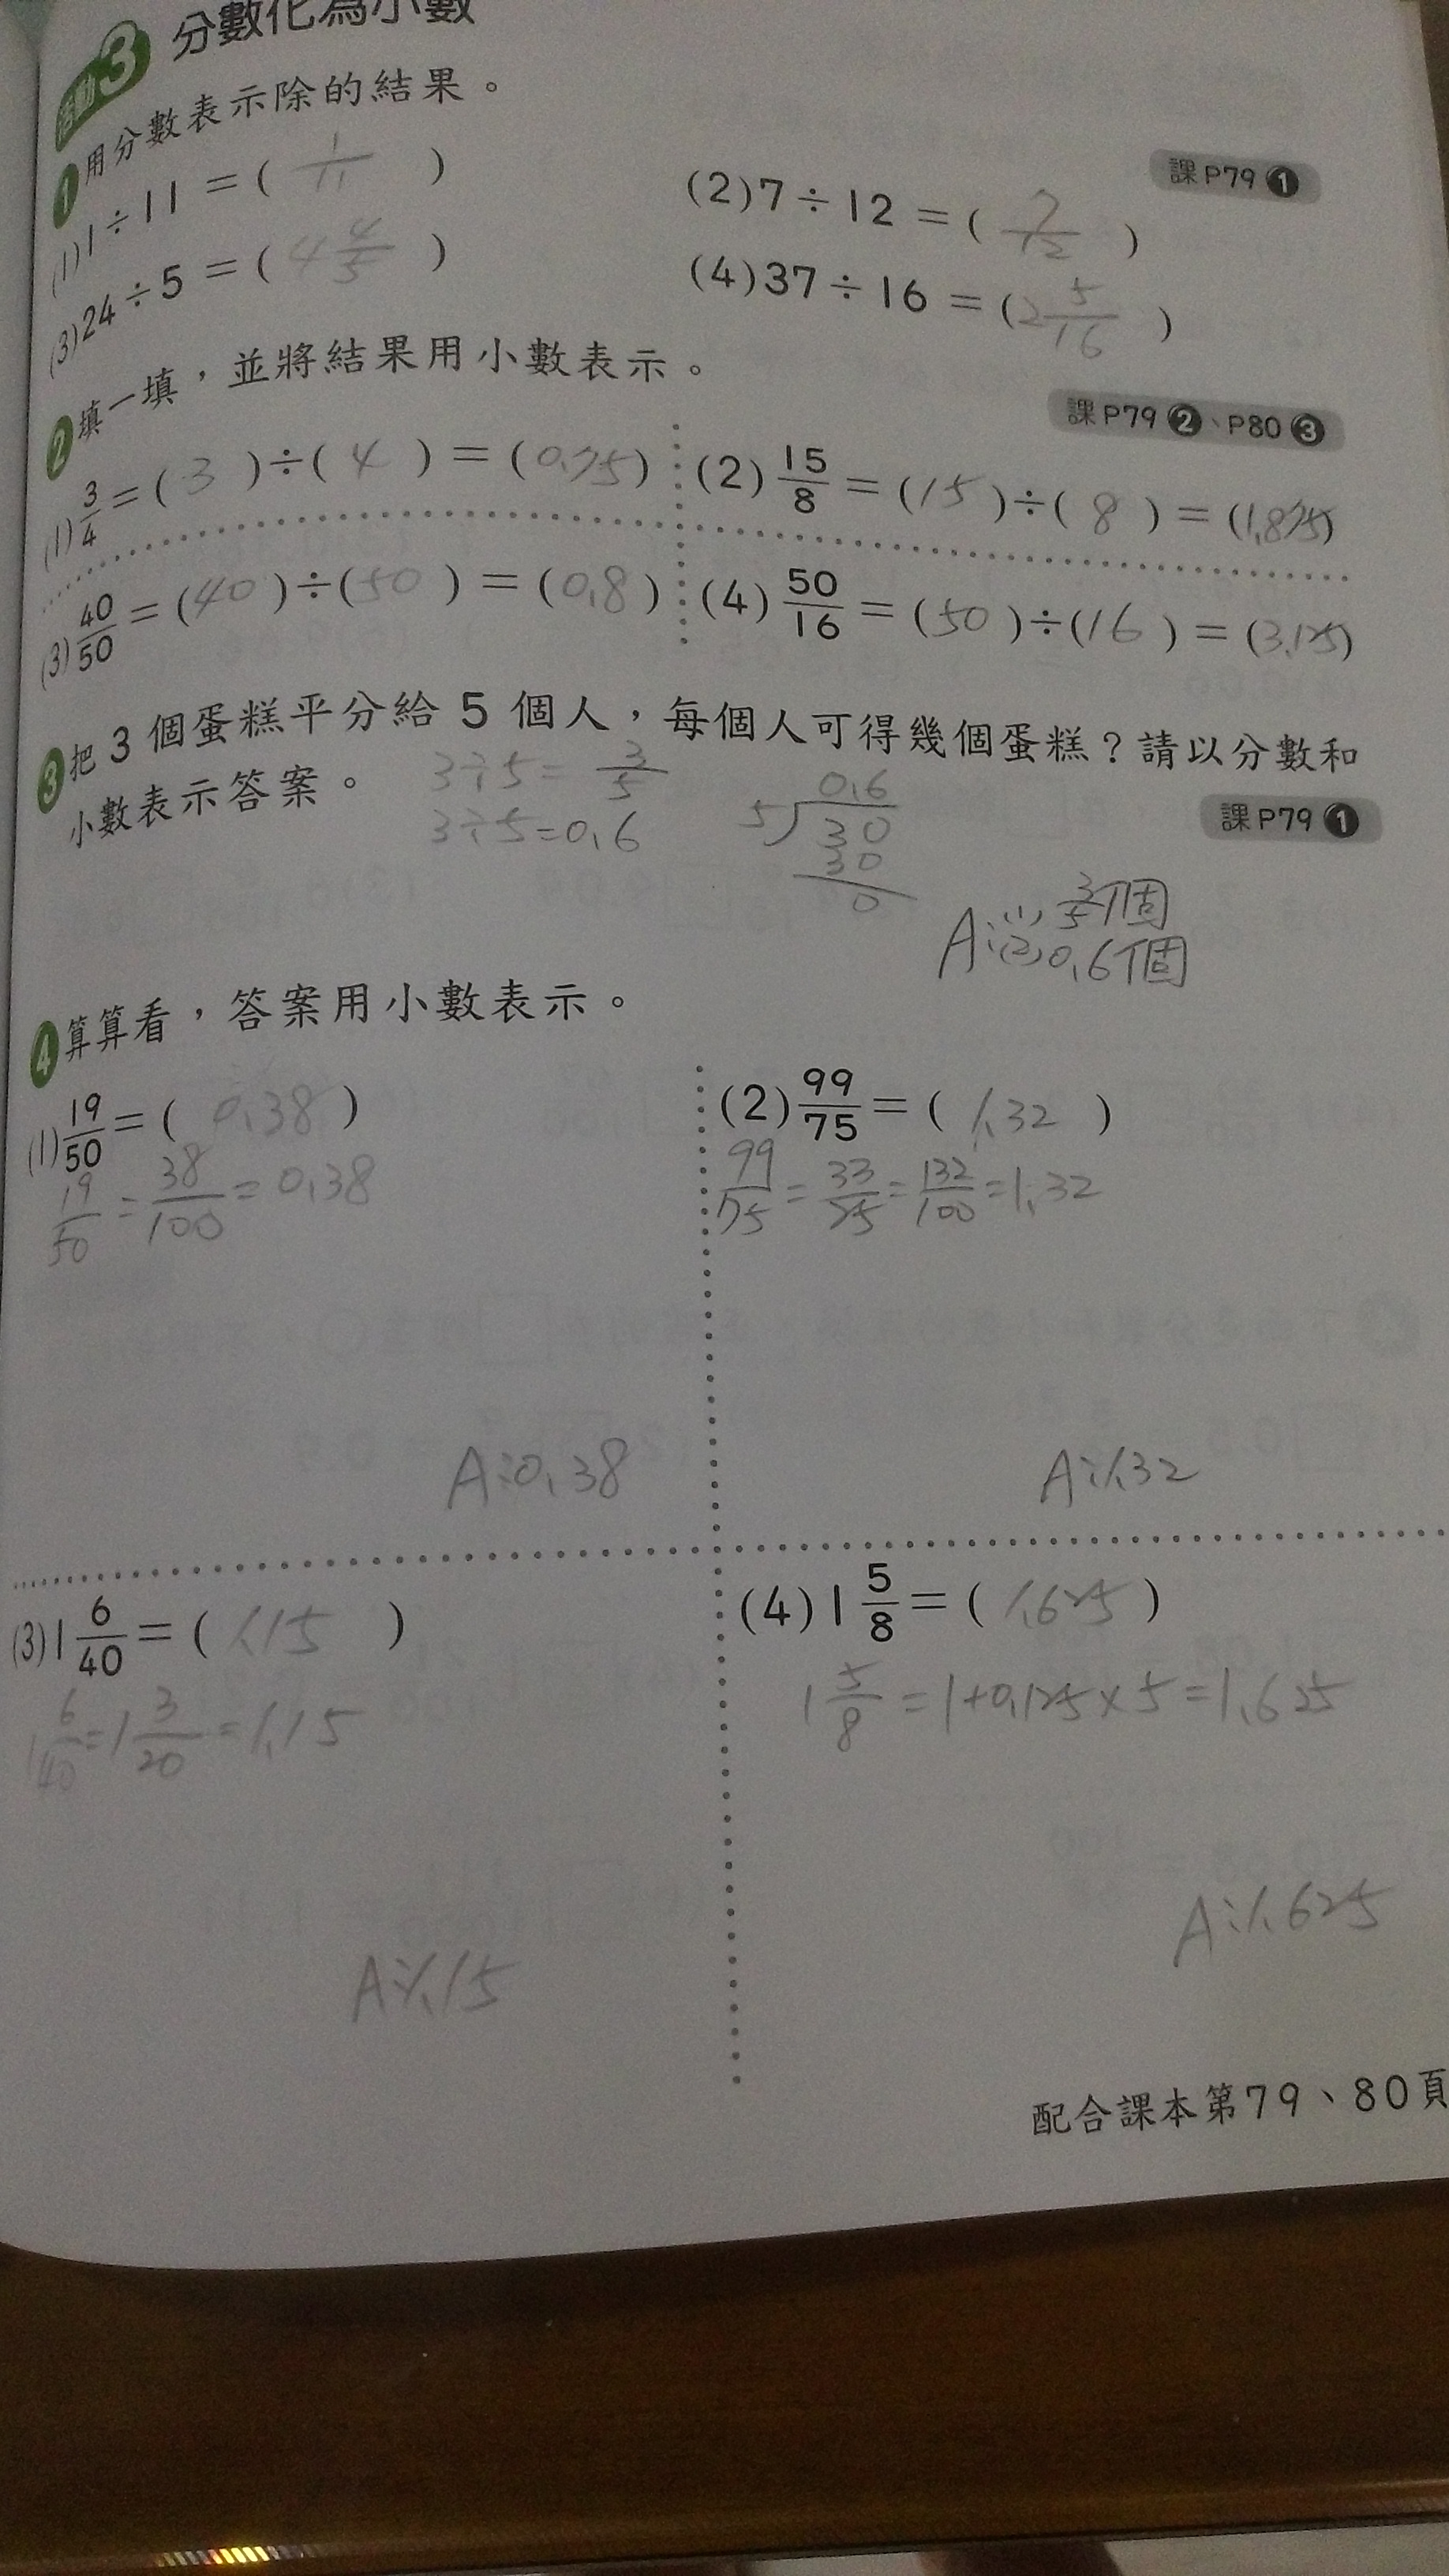 活動3 分數化為小數
1 用分數表示除的結果。
課P79 1
(1) 1÷11=( 1/11 )
(2) 7÷12=( 7/12 )
(3) 24÷5=( 4 4/5 )
(4) 37÷16=( 2 5/16 )
2 填一填，並將結果用小數表示。
課P79 2、P80 3
(1) 3/4=( 3 )÷( 4 )=( 0.75 )
(2) 15/8=( 15 )÷( 8 )=( 1.875 )
(3) 40/50=( 40 )÷( 50 )=( 0.8 )
(4) 50/16=( 50 )÷( 16 )=( 3.125 )
3 把 3 個蛋糕平分給 5 個人，每個人可得幾個蛋糕？請以分數和
小數表示答案。
課P79 1
3÷5= 3/5
3÷5=0.6
0.6
5 30
30
0
A:(1) 3/5個
(2) 0.6個
4 算算看，答案用小數表示。
(1) 19/50=( 0.38 )
19/50=38/100=0.38
A:0.38
(2) 99/75=( 1.32 )
99/75=33/25=132/100=1.32
A:1.32
(3) 1 6/40=( 1.15 )
1 6/40=1 3/20=1.15
A:1.15
(4) 1 5/8=( 1.625 )
1 5/8=1+0.125×5=1.625
A:1.625
配合課本第79、80頁